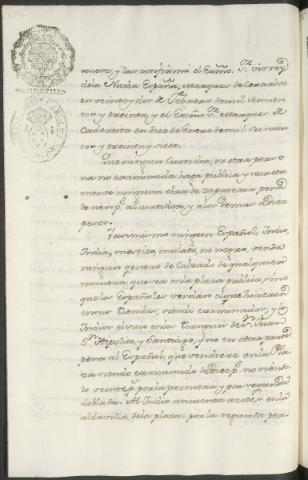 nueve, y las confirmó el Exmo. Sr. Virrey
dela Nueva España, Marques de Cerralvo
en veinte y dos de Febrero de mil seiscien
tos y treinta, y el Exmo. Sr. Marques de
Cadereita en dies de Enero de mil seiscien
tos y treinta y siete.
Que ningun Curtidor, ni otra perso
na no examinada haga publica y secreta
mente ninguna obra de zapateria pena
de cien ps. al curtidor, y alos demas diez
pesos.
Asimismo ningun Español, Indio,
India, mestizo, mulato, ni negro, venda
ningun genero de Calzado de qualquiera
manera que sea en la plaza publica, sino
que los Españoles vendan el que hicieren
en sus tiendas, siendo examinados, y los
Indios el suyo en los Tianguis de Sn. Juan
Sn. Hipolito, y Santiago, y no en otra parte
pena al Español, que vendiere en la Pla
za siendo examinado de diez ps. no siendo
lo veinte ps. por la primera, y por segunda
doblada. Al Indio cinquenta azotes en la
aldavilla dela plaza: por la segunda per